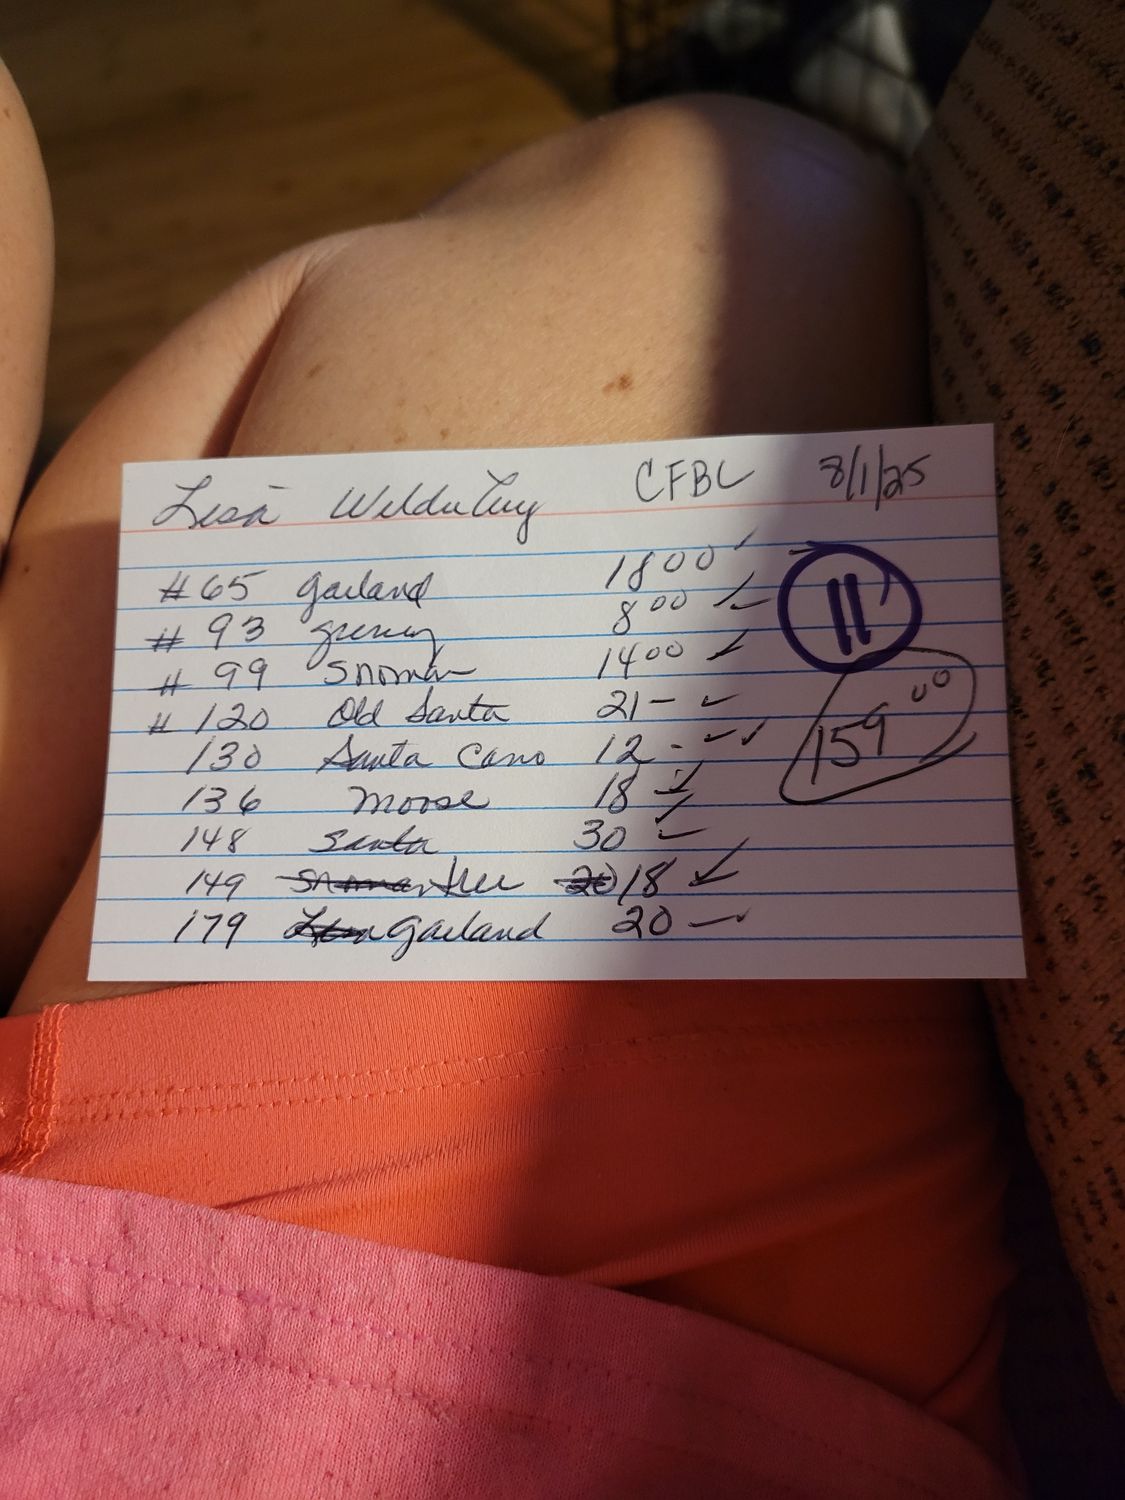 Lisa CFBC 8/1/25
#65 garland 18 00
# 93 8 00
# 99 Snoman 14 00
# 120 Old Santa 21 –
130 Santa 12 -
136 moose 18
148 Santa 30
149 Snoman tree 20 18
179 garland 20
11
159 00